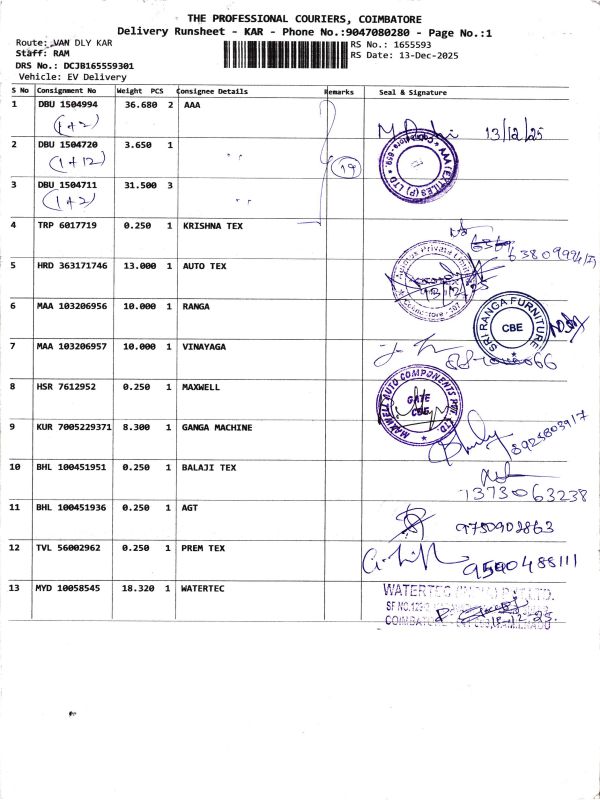 THE PROFESSIONAL COURIERS, COIMBATORE
Delivery Runsheet - KAR - Phone No.:9047080280 - Page No.:1
Route: VAN DLY KAR
RS No.: 1655593
Staff: RAM
RS Date: 13-Dec-2025
DRS No.: DCJB165559301
Vehicle: EV Delivery
S No Consignment No Weight PCS Consignee Details Remarks Seal & Signature
1 DBU 1504994 36.680 2 AAA
(1+2) 13/12/25
2 DBU 1504720 3.650 1 " "
(1+12) (19)
3 DBU 1504711 31.500 3 " "
(1+2)
4 TRP 6017719 0.250 1 KRISHNA TEX
5 HRD 363171746 13.000 1 AUTO TEX
6 MAA 103206956 10.000 1 RANGA
SRI RANGA FURNITURE CBE
7 MAA 103206957 10.000 1 VINAYAGA
8 HSR 7612952 0.250 1 MAXWELL
MAXWELL AUTO COMPONENTS PVT. LTD. GATE CBE
9 KUR 7005229371 8.300 1 GANGA MACHINE
8925803917
10 BHL 100451951 0.250 1 BALAJI TEX
1373063238
11 BHL 100451936 0.250 1 AGT
9750902863
12 TVL 56002962 0.250 1 PREM TEX
9500488111
13 MYD 10058545 18.320 1 WATERTEC
WATERTEC PVT. LTD.